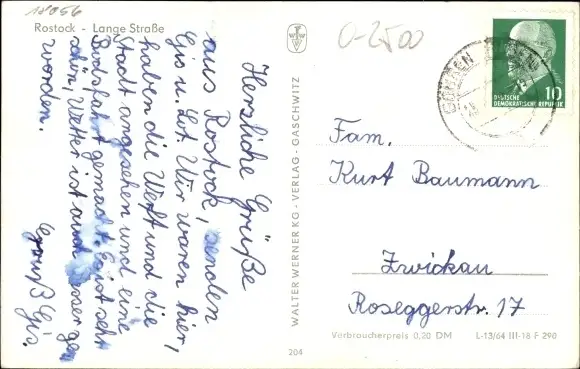 18056
Rostock - Lange Straße
0-2500
Herzliche Grüße
aus Rostock, senden
Gis u. Lot. Wir waren hier,
haben die Werft und die
Stadt angesehen und eine
Bootsfahrt gemacht. Es ist sehr
schön, Wetter ist auch besser ge-
worden.
Gruß Gis.
WALTER WERNER KG - VERLAG - GASCHWITZ
10
DEUTSCHE
DEMOKRATISCHE REPUBLIK
Fam.
Kurt Baumann
Zwickau
Roseggerstr. 17
Verbraucherpreis 0,20 DM
L-13/64 III-18 F 290
204